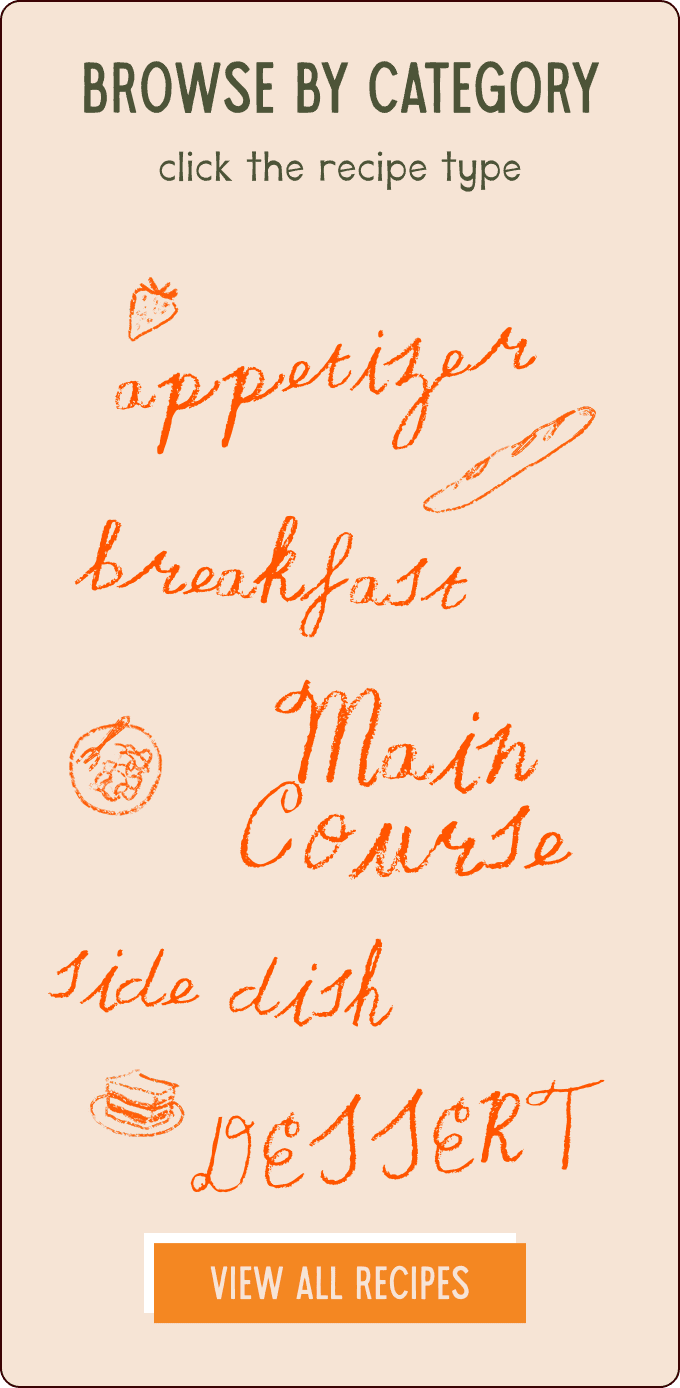 BROWSE BY CATEGORY
click the recipe type
appetizer
breakfast
Main
Course
side dish
DESSERT
VIEW ALL RECIPES